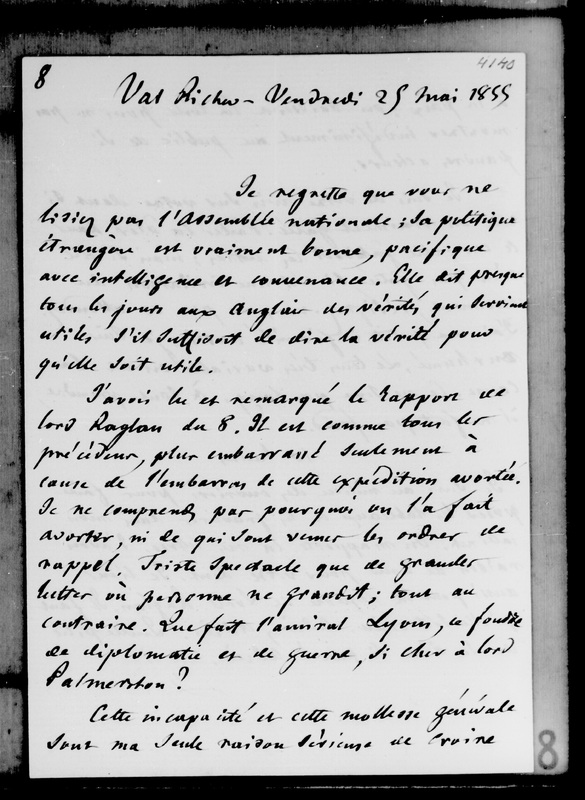 8
4140
Val Richer - Vendredi 25 mai 1855
Je regrette que vous ne
lisiez pas l'Assemblée nationale ; sa politique
étrangère est vraiment bonne, pacifique
avec intelligence et convenance. Elle dit presque
tous les jours aux Anglais des vérités qui seroient
utiles s'il suffisoit de dire la vérité pour
qu'elle soit utile.
J'avois lu et remarqué le rapport de
lord Raglan du 8. Il est comme tous les
précédens, plus embarrassé seulement à
cause de l'embarras de cette expédition avortée.
Je ne comprends pas pourquoi on l'a fait
avorter, ni de qui sont venus les ordres de
rappel. Triste spectacle que de grandes
luttes où personne ne grandit ; tout au
contraire. Que fait l'amiral Lyons, ce foudre
de diplomatie et de guerre, si cher à lord
Palmerston ?
Cette incapacité et cette mollesse générale
sont ma seule raison sérieuse de croire
8